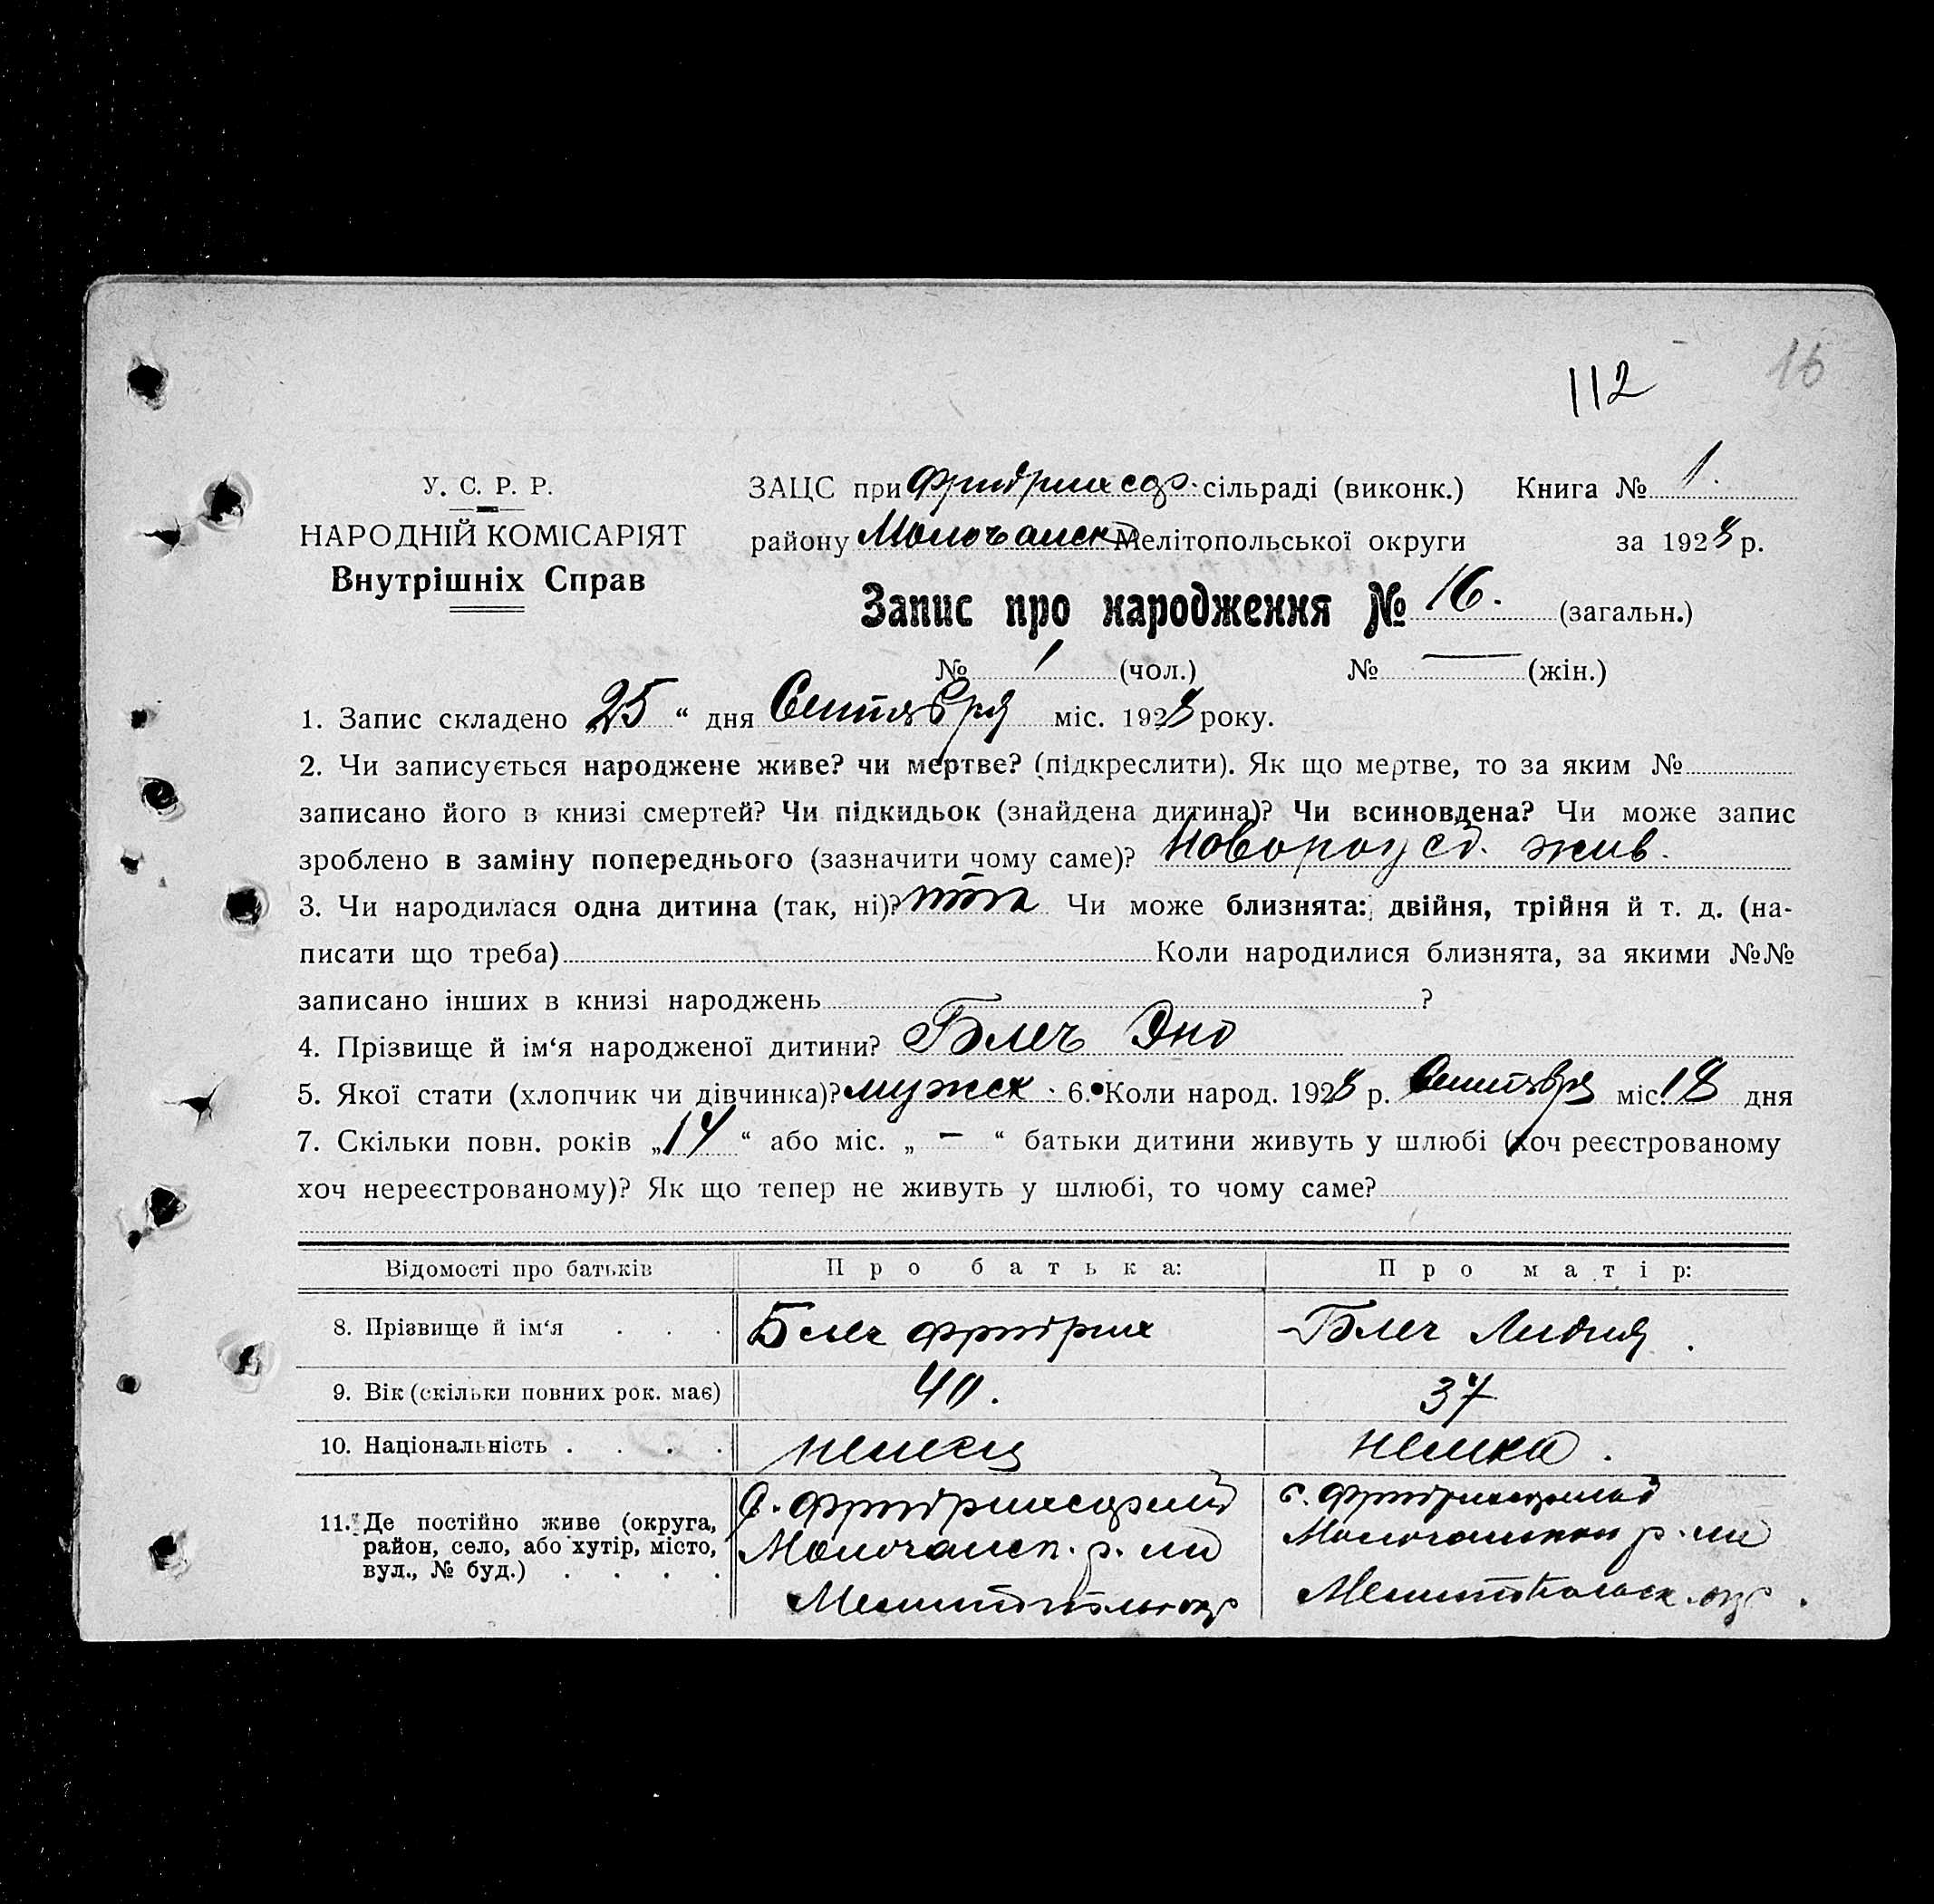 16
112
У. С. Р. Р.
НАРОДНІЙ КОМІСАРІЯТ
Внутрішніх Справ
ЗАЦС при Фридрихсф. сільраді (виконк.) Книга № 1.
району Молочанск Мелітопольської округи за 1928 р.
Запис про народження № 16. (загальн.)
№ 1 (чол.) № — (жін.)
1. Запис складено „25“ дня Сентября міс. 1928 року.
2. Чи записується народжене живе? чи мертве? (підкреслити). Як що мертве, то за яким №
записано його в книзі смертей? Чи підкидьок (знайдена дитина)? Чи всиновлена? Чи може запис
зроблено в заміну попереднього (зазначити чому саме)? Новорожд. жив.
3. Чи народилася одна дитина (так, ні)? Чи може близнята: двійня, трійня й т. д. (на-
писати що треба) Коли народилися близнята, за якими №№
записано інших в книзі народжень ?
4. Прізвище й ім‘я народженої дитини? Блеч
5. Якої стати (хлопчик чи дівчинка)? мужск. 6. Коли народ. 1928 р. Сентября міс. 18 дня
7. Скільки повн. років „14“ або міс. „ — “ батьки дитини живуть у шлюбі (хоч реєстрованому
хоч нереєстрованому)? Як що тепер не живуть у шлюбі, то чому саме?
Відомості про батьків Про батька: Про матір:
8. Прізвище й ім‘я . . . Блеч Фридрих Блеч Лидия.
9. Вік (скільки повних рок. має) 40. 37
10. Національність . . . . немец немка.
11. Де постійно живе (округа,
район, село, або хутір, місто,
вул., № буд.) . . . .
с. Фридрихсфельд
Молочанск. р-на
Мелитопольск. окр.
с. Фридрихсфельд
Молочанского р-на
Мелитопольск. окр.